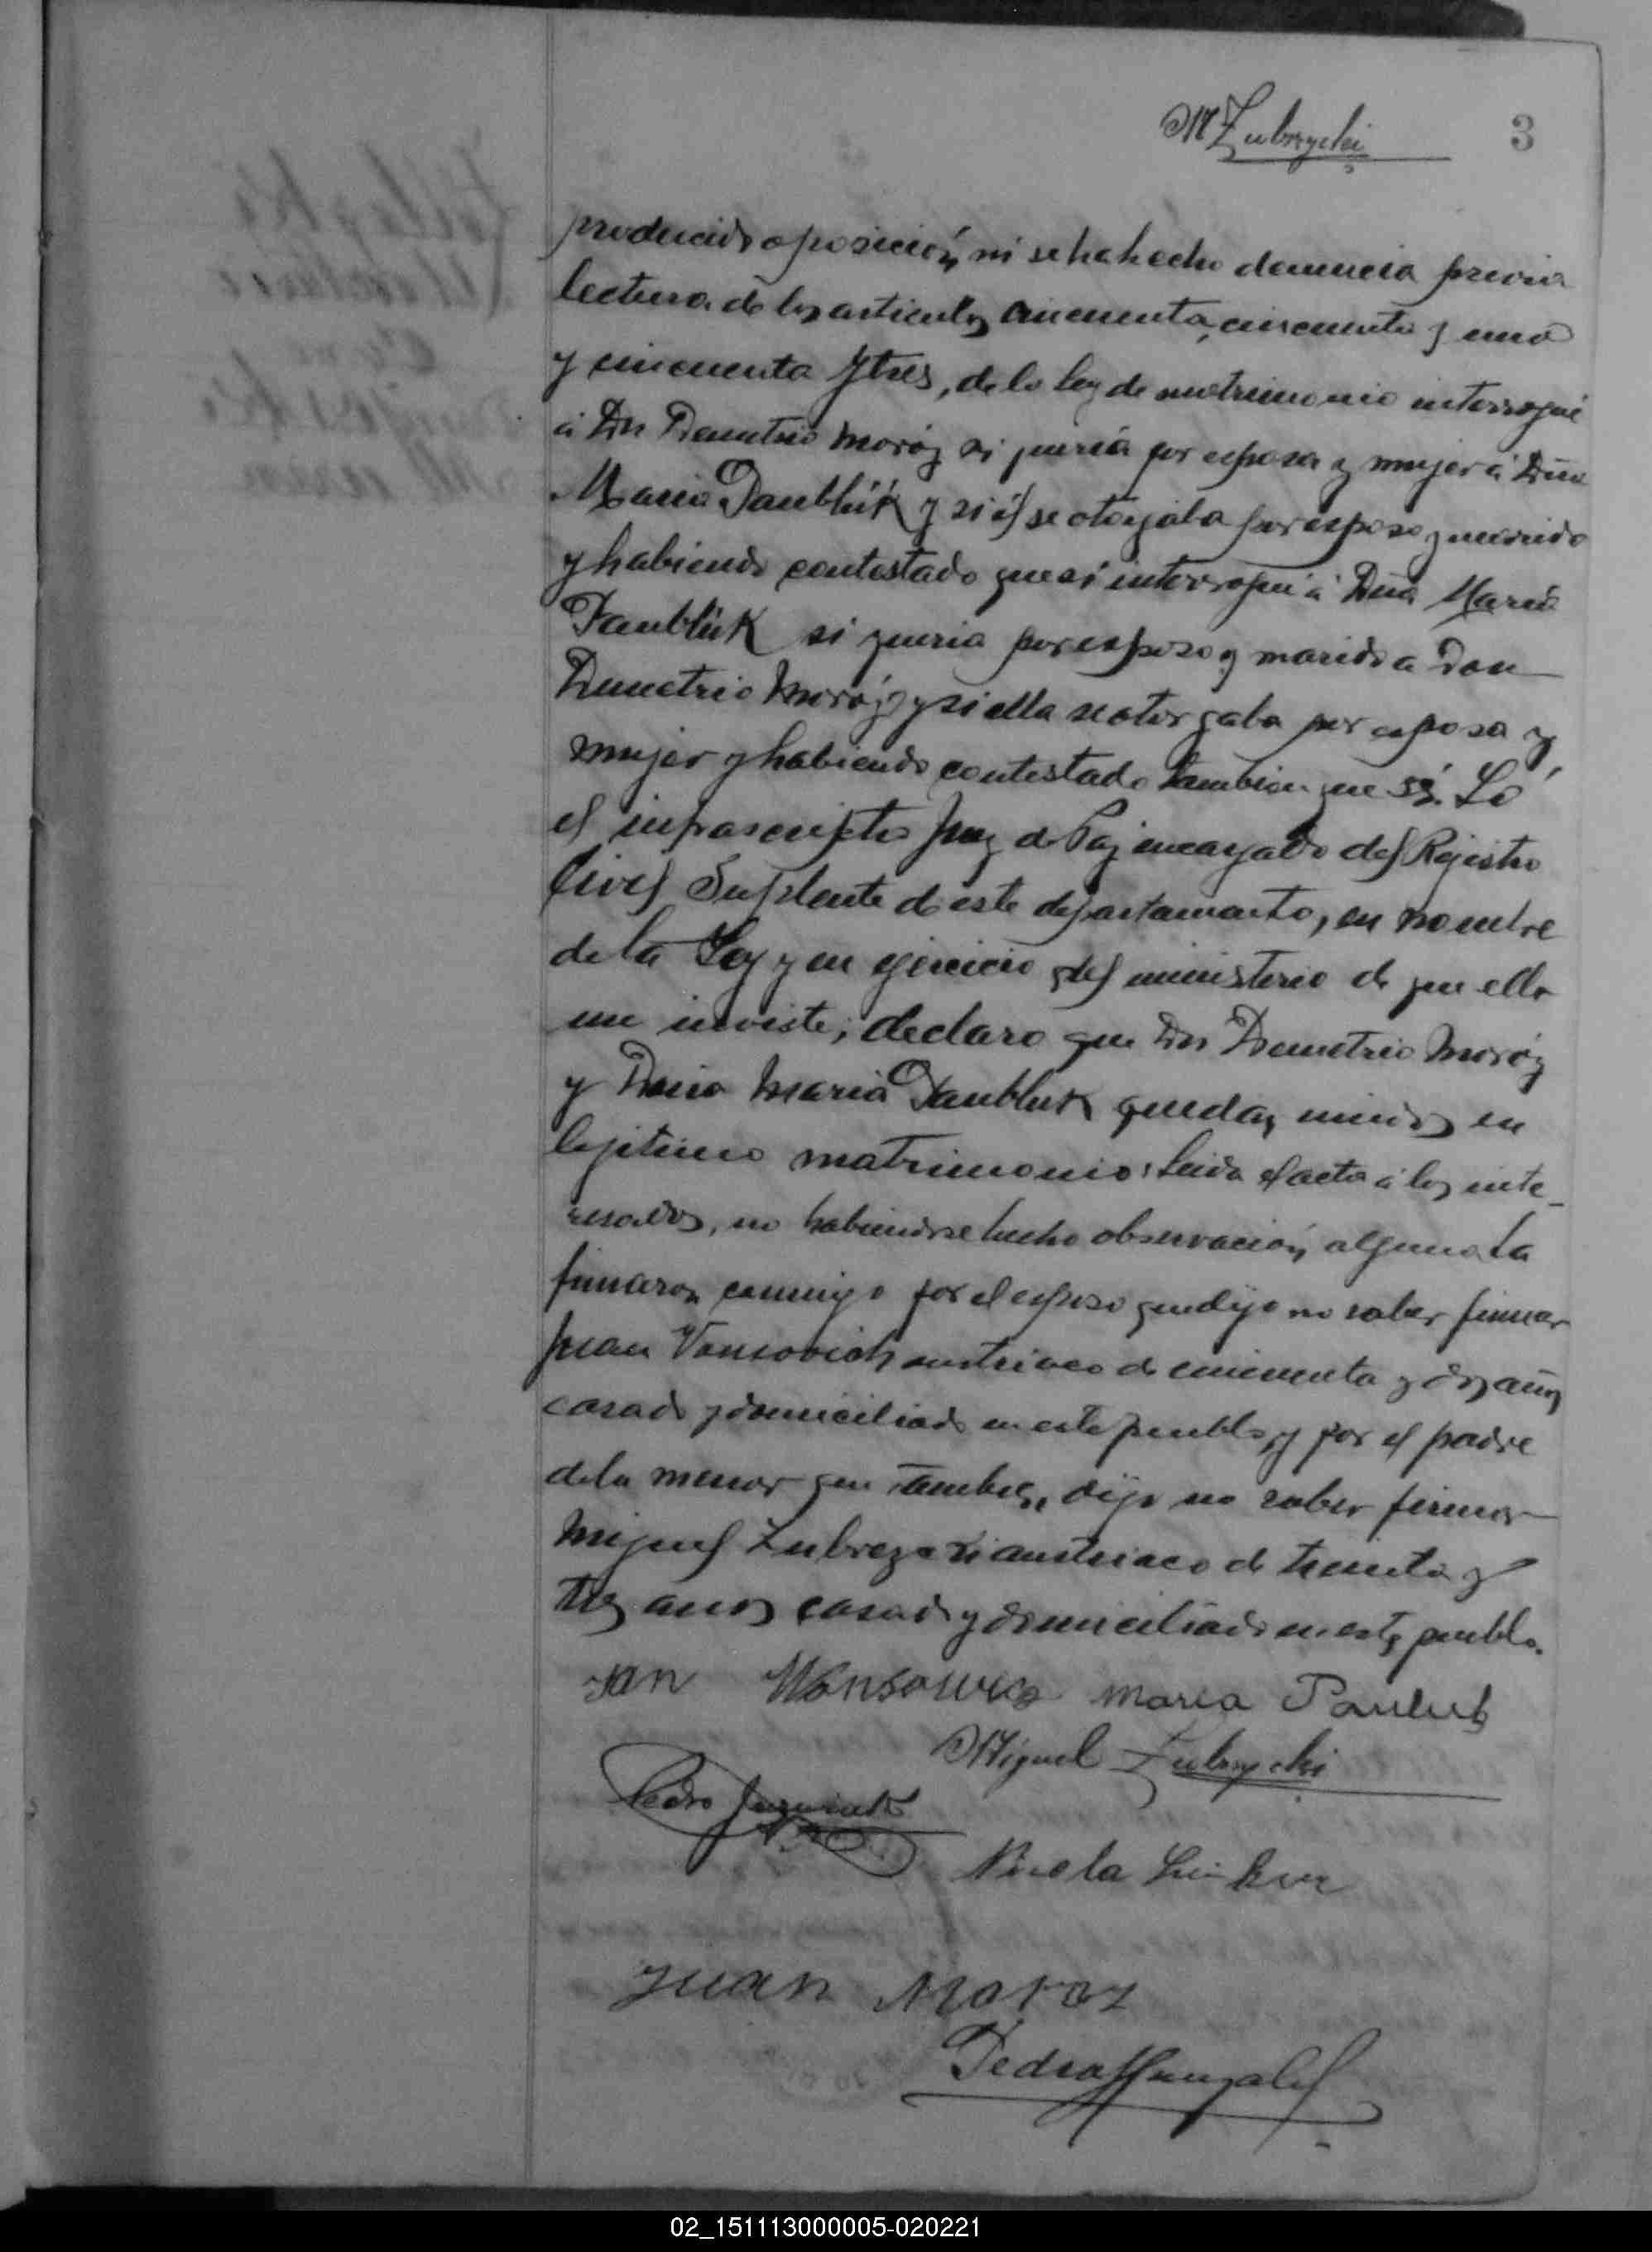 M Zubrzycki
3
producido oposición, ni se ha hecho denuncia previa
lectura de los articulos cincuenta, cincuenta y uno
y cincuenta y tres, de la ley de matrimonio interrogué
á Dn Demetrio Moróz si queria por esposa y mujer á Dña
Maria Paublúk y si él se otorgaba por esposo y marido
y habiendo contestado que sí interrogué á Dña Maria
Paublúk si queria por esposo y marido a Don
Demetrio Moróz y si ella se otorgaba por esposa y
mujer y habiendo contestado tambien que sí. Yó
el infrascripto Juez de Paz encargado del Rejistro
Civil Suplente de este departamento, en nombre
de la Ley y en ejercicio del ministerio de que ella
me inviste; declaro que Dn Demetrio Moróz
y Doña Maria Paubluk quedan unidos en
lejitimo matrimonio: Leida el acta á los inte-
resados, no habiendose hecho observación alguna la
firmaron conmigo por el esposo que dijo no saber firmar
Juan Vonsovich austriaco de cincuenta y dos años
casado y domiciliado en este pueblo y por el padre
de la menor que tambien, dijo no saber firmar
Miguel Zubrezeki austriaco de treinta y
tres años casado y domiciliado en este pueblo.
Jan Wonsowicz Maria Pauluk
Miguel Zubrzycki
Pedro
Nicola
Juan Moroz
Pedro Gonzalez
02_151113000005-020221